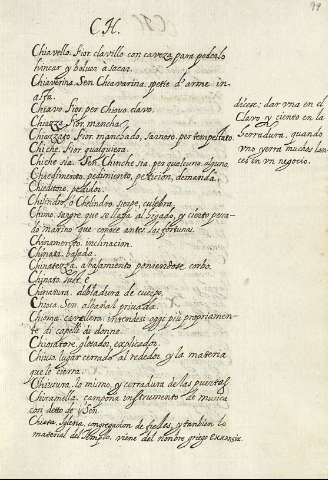 99
CH.
Chiavello. Fior. clavillo con caveza, para poderlo
hincar y bolver a sacar.
Chiaverina. Sen. Chiavarina. spetie d'arme in
asta.
Chiavo. Fior. per Chiovo. clavo.
Chiazza. Fior. mancha.
Chiazzato. Fior. manchado,
Chiche. Fior. qualquiera.
Chiche sia. Sen. Chinche sia. per qualcuno. alguno.
Chiedimento. pedimiento, petición, demanda.
Chieditore. pedidor.
Chelindro, o Chelidro. sierpe, culebra.
sangre que se
marino que conoce antes las fortunas.
Chinamento. inclinacion.
Chinata. bajada.
Chinatezza. abajamiento poniendose corbo.
Chinato.
Chinatura. dibladura de cuerpo.
Chioca. Sen. albañal, privada.
Chioma. cavellera. intendesi oggi più propriamen-
te di capelli di donne.
Chiositore. glosador, explicador.
Chiuso. lugar cerrado al rededor, y la materia
que lo cierra.
Chiusura. lo mismo, y cerradura de las puertas
Chiaramella. campoña instrumento de musica
con detto de
Chiesa. Iglesia. congregacion de fieles, y tambien lo
material del Templo. viene del nombre griego
dicese: dar una en el
Clavo y ciento en la
Herradura. quando
uno yerra muchas lan-
ces in un negocio.